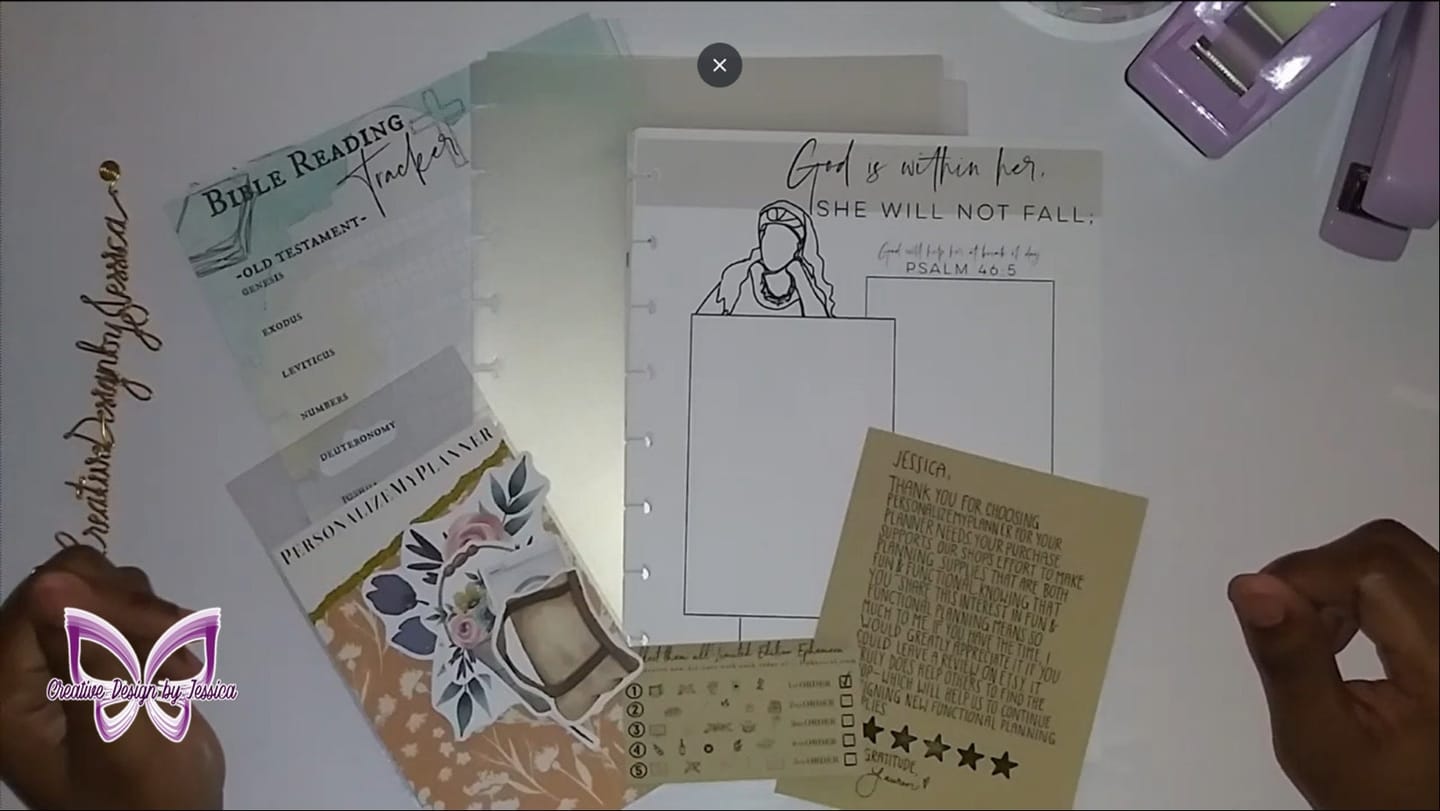 BIBLE READING
Tracker
-OLD TESTAMENT-
GENESIS
EXODUS
LEVITICUS
NUMBERS
DEUTERONOMY
JOSHUA
CreativeDesignbyJessica
PERSONALIZEMYPLANNER
God is within her,
SHE WILL NOT FALL;
God will help her at break of day
PSALM 46:5
JESSICA,
THANK YOU FOR CHOOSING
PERSONALIZEMYPLANNER FOR YOUR
PLANNER NEEDS. YOUR PURCHASE
SUPPORTS OUR SHOPS EFFORT TO MAKE
PLANNING SUPPLIES THAT ARE BOTH
FUN & FUNCTIONAL. KNOWING THAT
YOU SHARE THIS INTEREST IN FUN &
FUNCTIONAL PLANNING MEANS SO
MUCH TO ME. IF YOU HAVE THE TIME, I
WOULD GREATLY APPRECIATE IT IF YOU
COULD LEAVE A REVIEW ON ETSY. IT
DOES HELP OTHERS TO FIND THE
IT WILL HELP US TO CONTINUE
NEW FUNCTIONAL PLANNING
GRATITUDE,
Lauren
them all! Limited Edition Ephemera
1 1st ORDER
2 2nd ORDER
3 3rd ORDER
4 4th ORDER
5 ORDER
Creative Design by Jessica